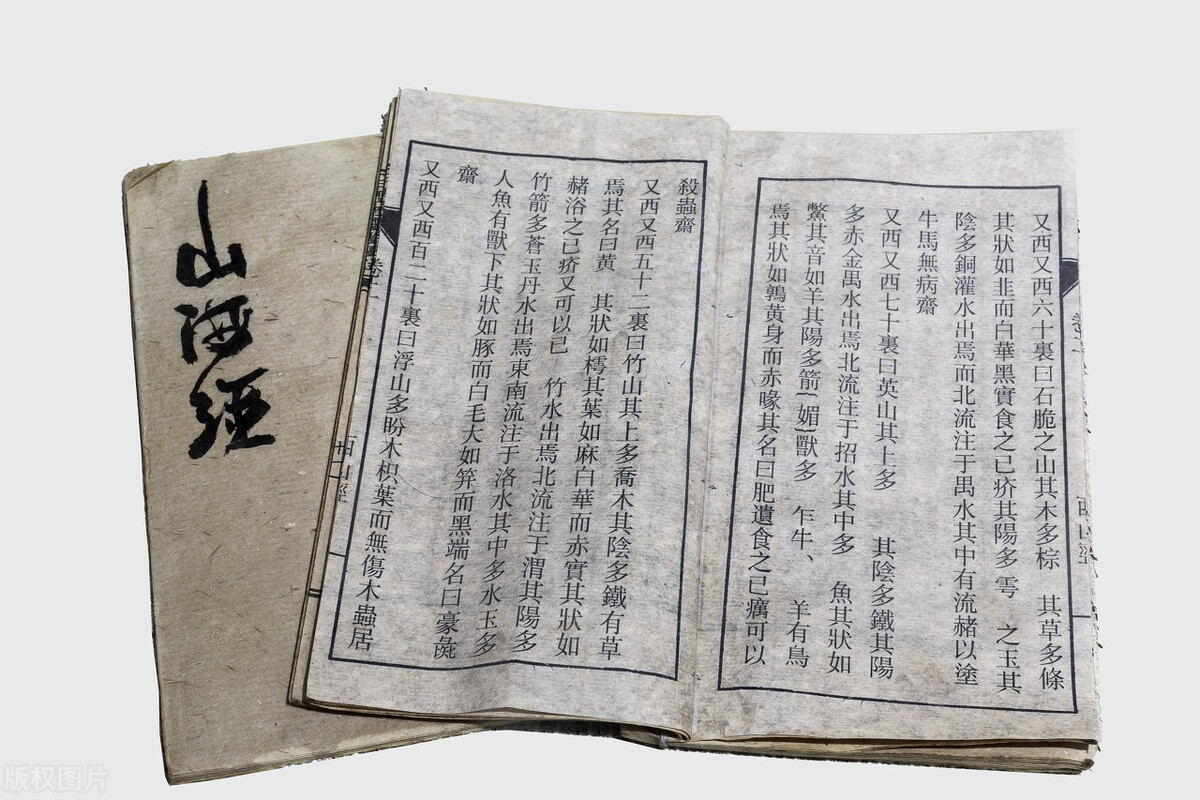 山海經
又西又西六十裏曰石脆之山其木多棕 其草多條
其狀如韭而白華黑實食之已疥其陽多 雩 之玉其
陰多銅灌水出焉而北流注于禺水其中有流赭以塗
牛馬無病齋
又西又西七十裏曰英山其上多 其陰多鐵其陽
多赤金禺水出焉北流注于招水其中多 魚其狀如
鱉其音如羊其陽多箭{媚}獸多 乍牛、 羊有鳥
焉其狀如鶉黃身而赤喙其名曰肥遺食之已癘可以
殺蟲齋
又西又西五十二裏曰竹山其上多喬木其陰多鐵有草
焉其名曰黃 其狀如樗其葉如麻白華而赤實其狀如
赭浴之已疥又可以已 竹水出焉北流注于渭其陽多
竹箭多蒼玉丹水出焉東南流注于洛水其中多水玉多
人魚有獸下其狀如豚而白毛大如笄而黑端名曰豪彘
齋
又西又西百二十裏曰浮山多盼木枳葉而無傷木蟲居
西山經
版权图片